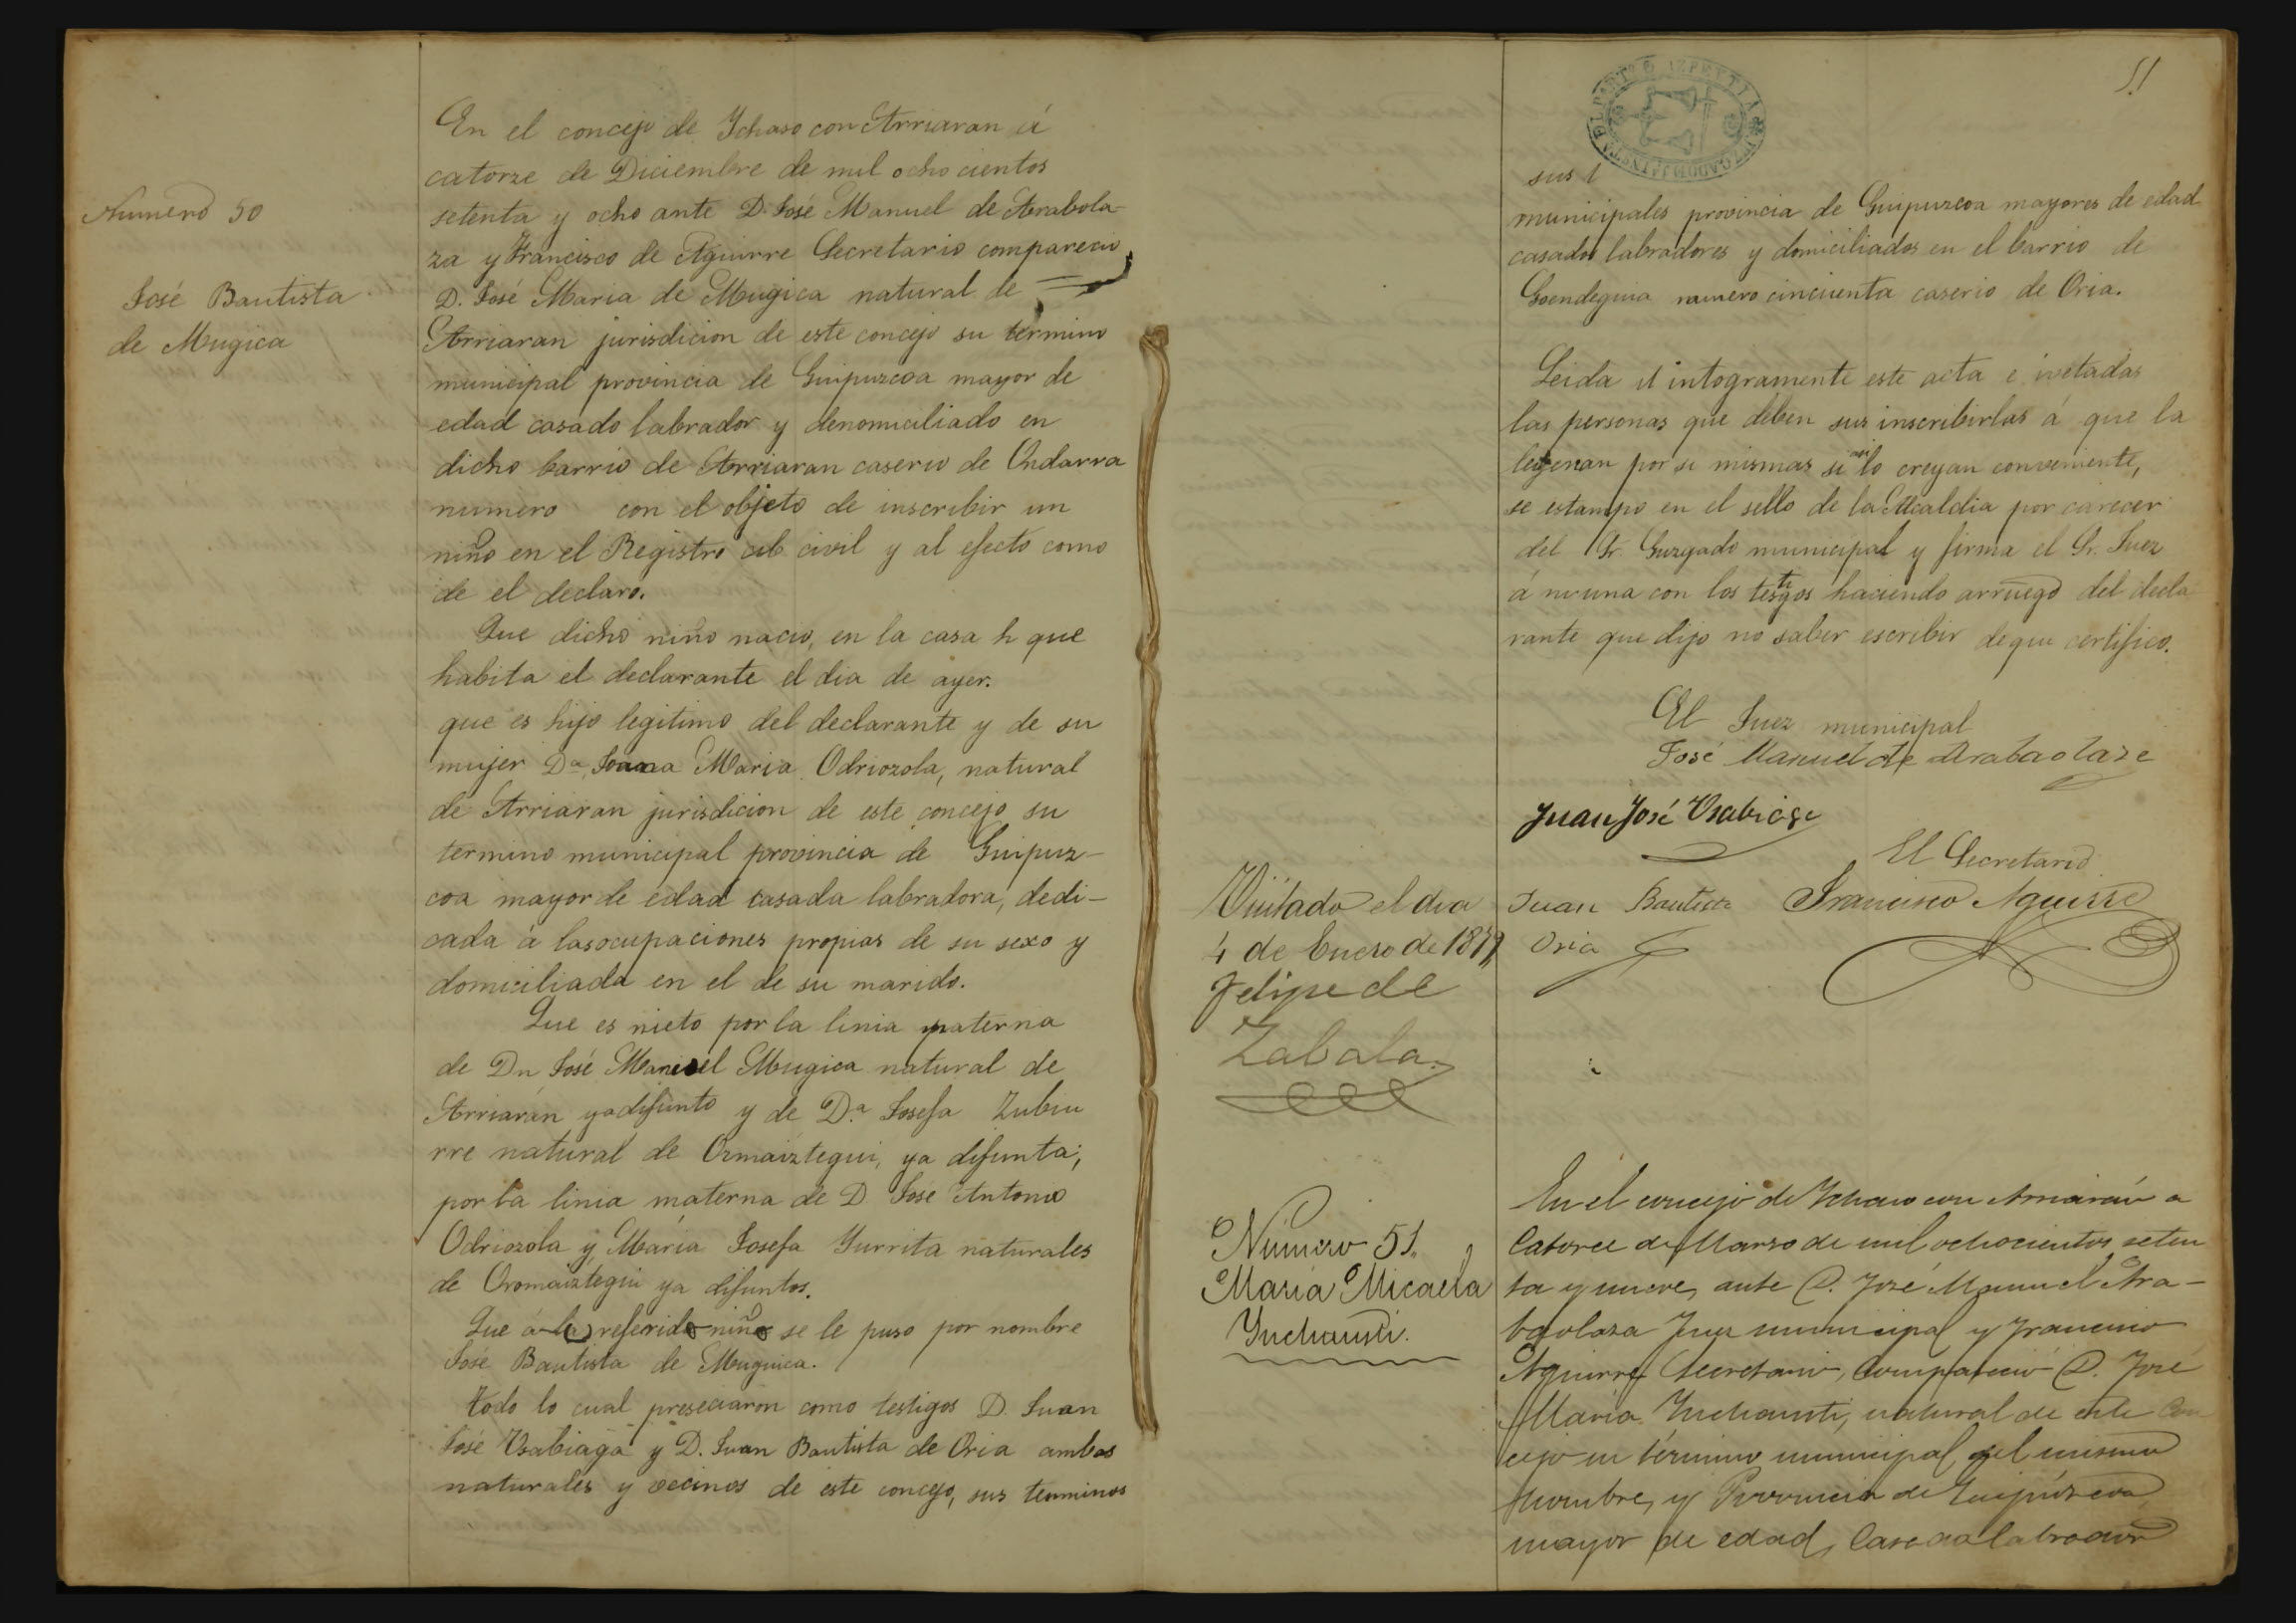 Numero 50
José Bautista
de Mugica
En el concejo de Ychaso con Arriaran á
catorze de Diciembre de mil ocho cientos
setenta y ocho ante D. José Manuel de Arabola-
za y Francisco de Aguirre Secretario comparecio
D. José Maria de Mugica natural de
Arriaran jurisdicion de este concejo su termino
municipal provincia de Guipuzcoa mayor de
edad casado labrador y denomiciliado en
dicho barrio de Arriaran caserio de Ondarra
numero con el objeto de inscribir un
niño en el Registro civil y al efecto como
de el declaro.
Que dicho niño nacio, en la casa h que
habita el declarante el dia de ayer.
que es hijo legitimo del declarante y de su
mujer Da Joana Maria Odriozola, natural
de Arriaran jurisdicion de este concejo su
termino municipal provincia de Guipuz-
coa mayor de edad casada labradora, dedi-
cada á las ocupaciones propias de su sexo y
domiciliada en el de su marido.
Que es nieto por la linia paterna
de Dn José Manuel Mugica natural de
Arriaran ya difunto y de D.a Josefa Zubiu
rre natural de Ormaiztegui, ya difunta;
por la linia materna de D José Antonio
Odriozola y Maria Josefa Yurrita naturales
de Oromaiztegui ya difuntos.
Que á referido niño se le puso por nombre
José Bautista de Muguica.
Todo lo cual preseciaron como testigos D. Juan
José Usabiaga y D. Juan Bautista de Oria ambos
naturales y vecinos de este concejo, sus terminos
51
PARTO AZPEITIA
sus
municipales provincia de Guipuzcoa mayores de edad
casados labradores y domiciliados en el barrio de
Goendeguia numero cincuenta caserio de Oria.
Leida intogramente este acta é ivetadas
las personas que deben sus inscribirlas á que la
por si mismas si asi lo creyan conveniente,
se estampo en el sello de la Alcaldia por carecer
del Sr. Guzgado municipal y firma el Sr. Juez
á nouna con los testigos haciendo arruego del decla
rante que dijo no saber escribir de que certifico.
El Juez municipal
José Manuel de Arabaolaze
Juan José Usabiaga
El Secretario
Juan Bautista Francisco Aguirre
Oria
Visitado el dia
4 de Enero de 1879
Felipe de
Zabala.
Número 51.
María Micaela
Ynchausti.
En el concejo de Ychaso con Arriarán a
Catorce de Marzo de mil ochocientos seten
ta y nueve, ante D. José Manuel Ara-
baolaza Juez municipal y Francisco
Aguirre Secretario, Compareció D. José
María Ynchausti, natural de este Con
cejo su término municipal del mismo
Nombre, y Provincia de Guipúzcoa
mayor de edad, Casado labrador